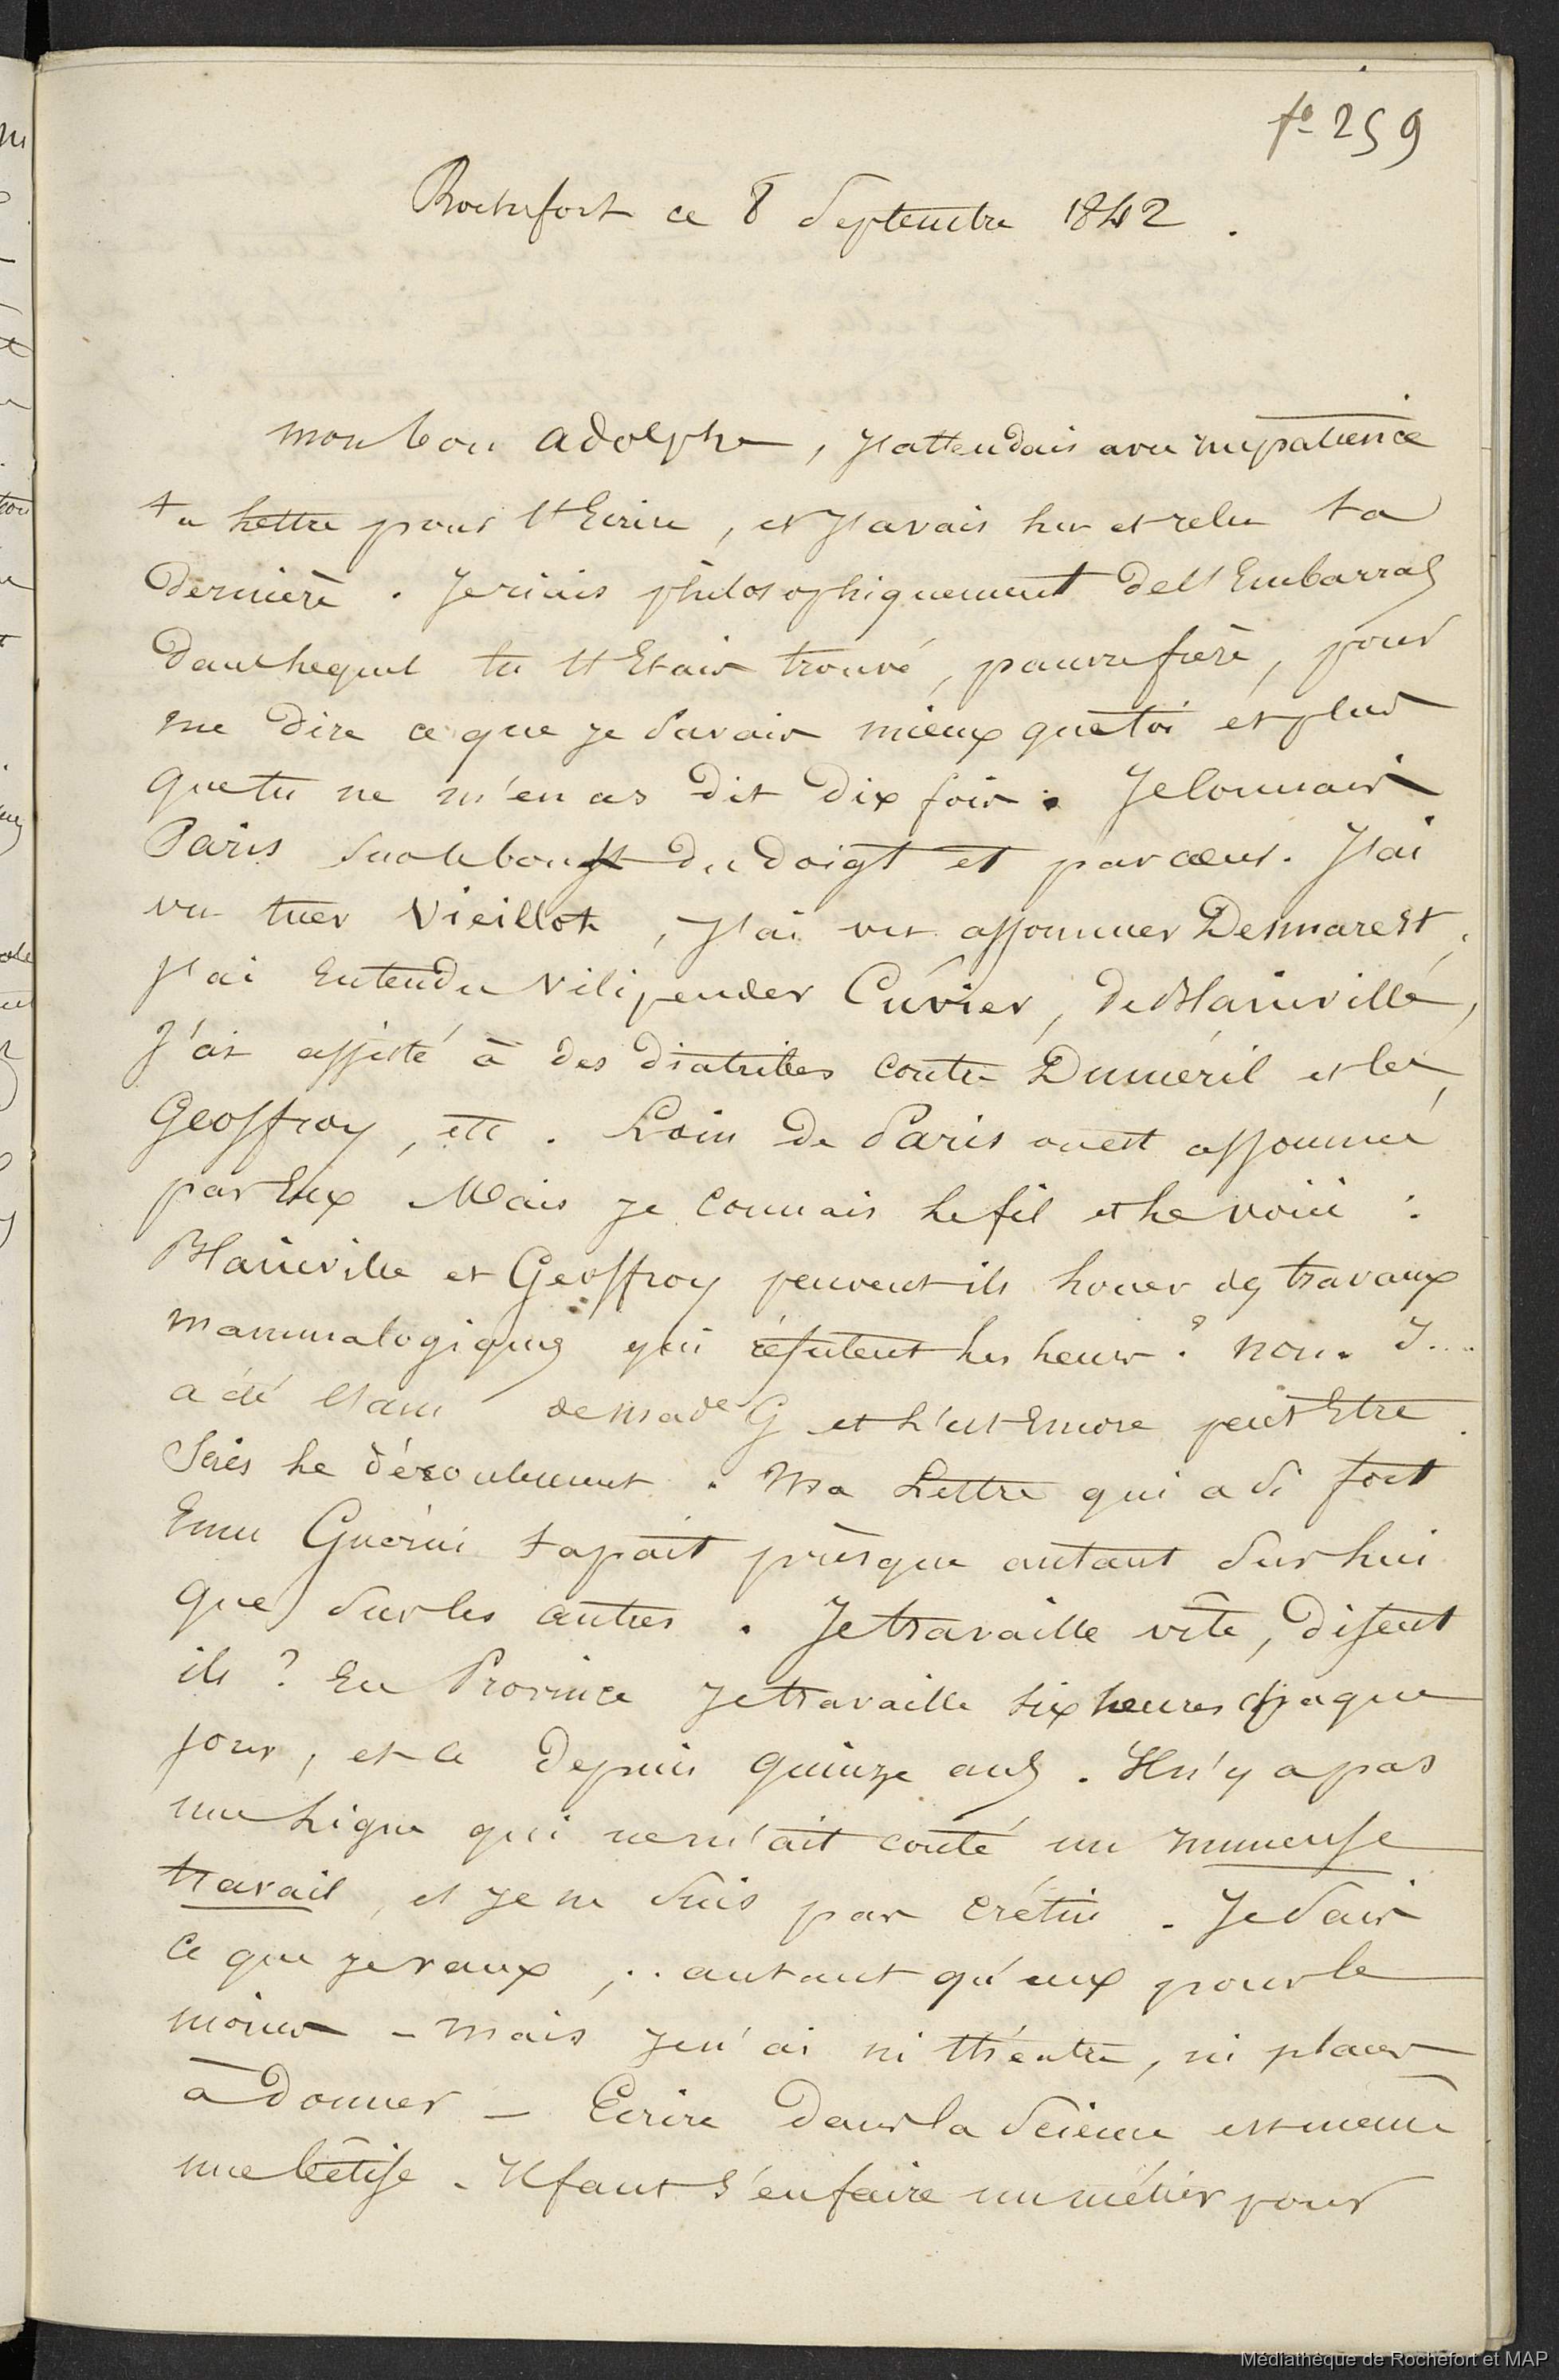 fo 259
Rochefort ce 8 Septembre 1842.
mon bon adolphe, J'attendais avec impatience
ta Lettre pour t'Ecrire, et J'avais lu et relu ta
Dernière. Je riais philosophiquement de l'Embarras
dans lequel tu t'Etais trouvé, pauvre frère, pour
me dire ce que je Savais mieux que toi et plus
que tu ne m'en as dit dix fois. Je Connais
Paris Sur le bout du doigt et par cœur. J'ai
vu tuer Vieillot, J'ai vu assommer Desmarest,
J'ai Entendu vilipender Cuvier, de Blainville,
J'ai assisté à des diatribes contre Duméril et les
Geoffroy, etc. Loin de Paris on est assommé
par Eux Mais je connais le fil et le voici :
Blainville et Geoffroy peuvent ils louer des travaux
mammalogiques qui réfutent les leurs ? non. J....
a été l'ami de made G et l'est Encore peut Etre.
Sais le dénouement. Ma Lettre qui a Si fort
Emu Guérin tapait presque autant Sur lui
que Sur les autres. Je travaille vite, disent
ils ? En Province Je travaille Six heures chaque
jour, et ce depuis quinze ans. Il n'y a pas
une Ligne qui ne m'ait couté un immense
travail, et Je ne Suis pas crétin. Je Sais
ce que je vaux,.. autant qu'eux pour le
moins - Mais je n'ai ni théatre, ni places
à donner - Ecrire dans la Science est même
une bêtise. Il faut s'en faire un métier pour
Médiathèque de Rochefort et MAP